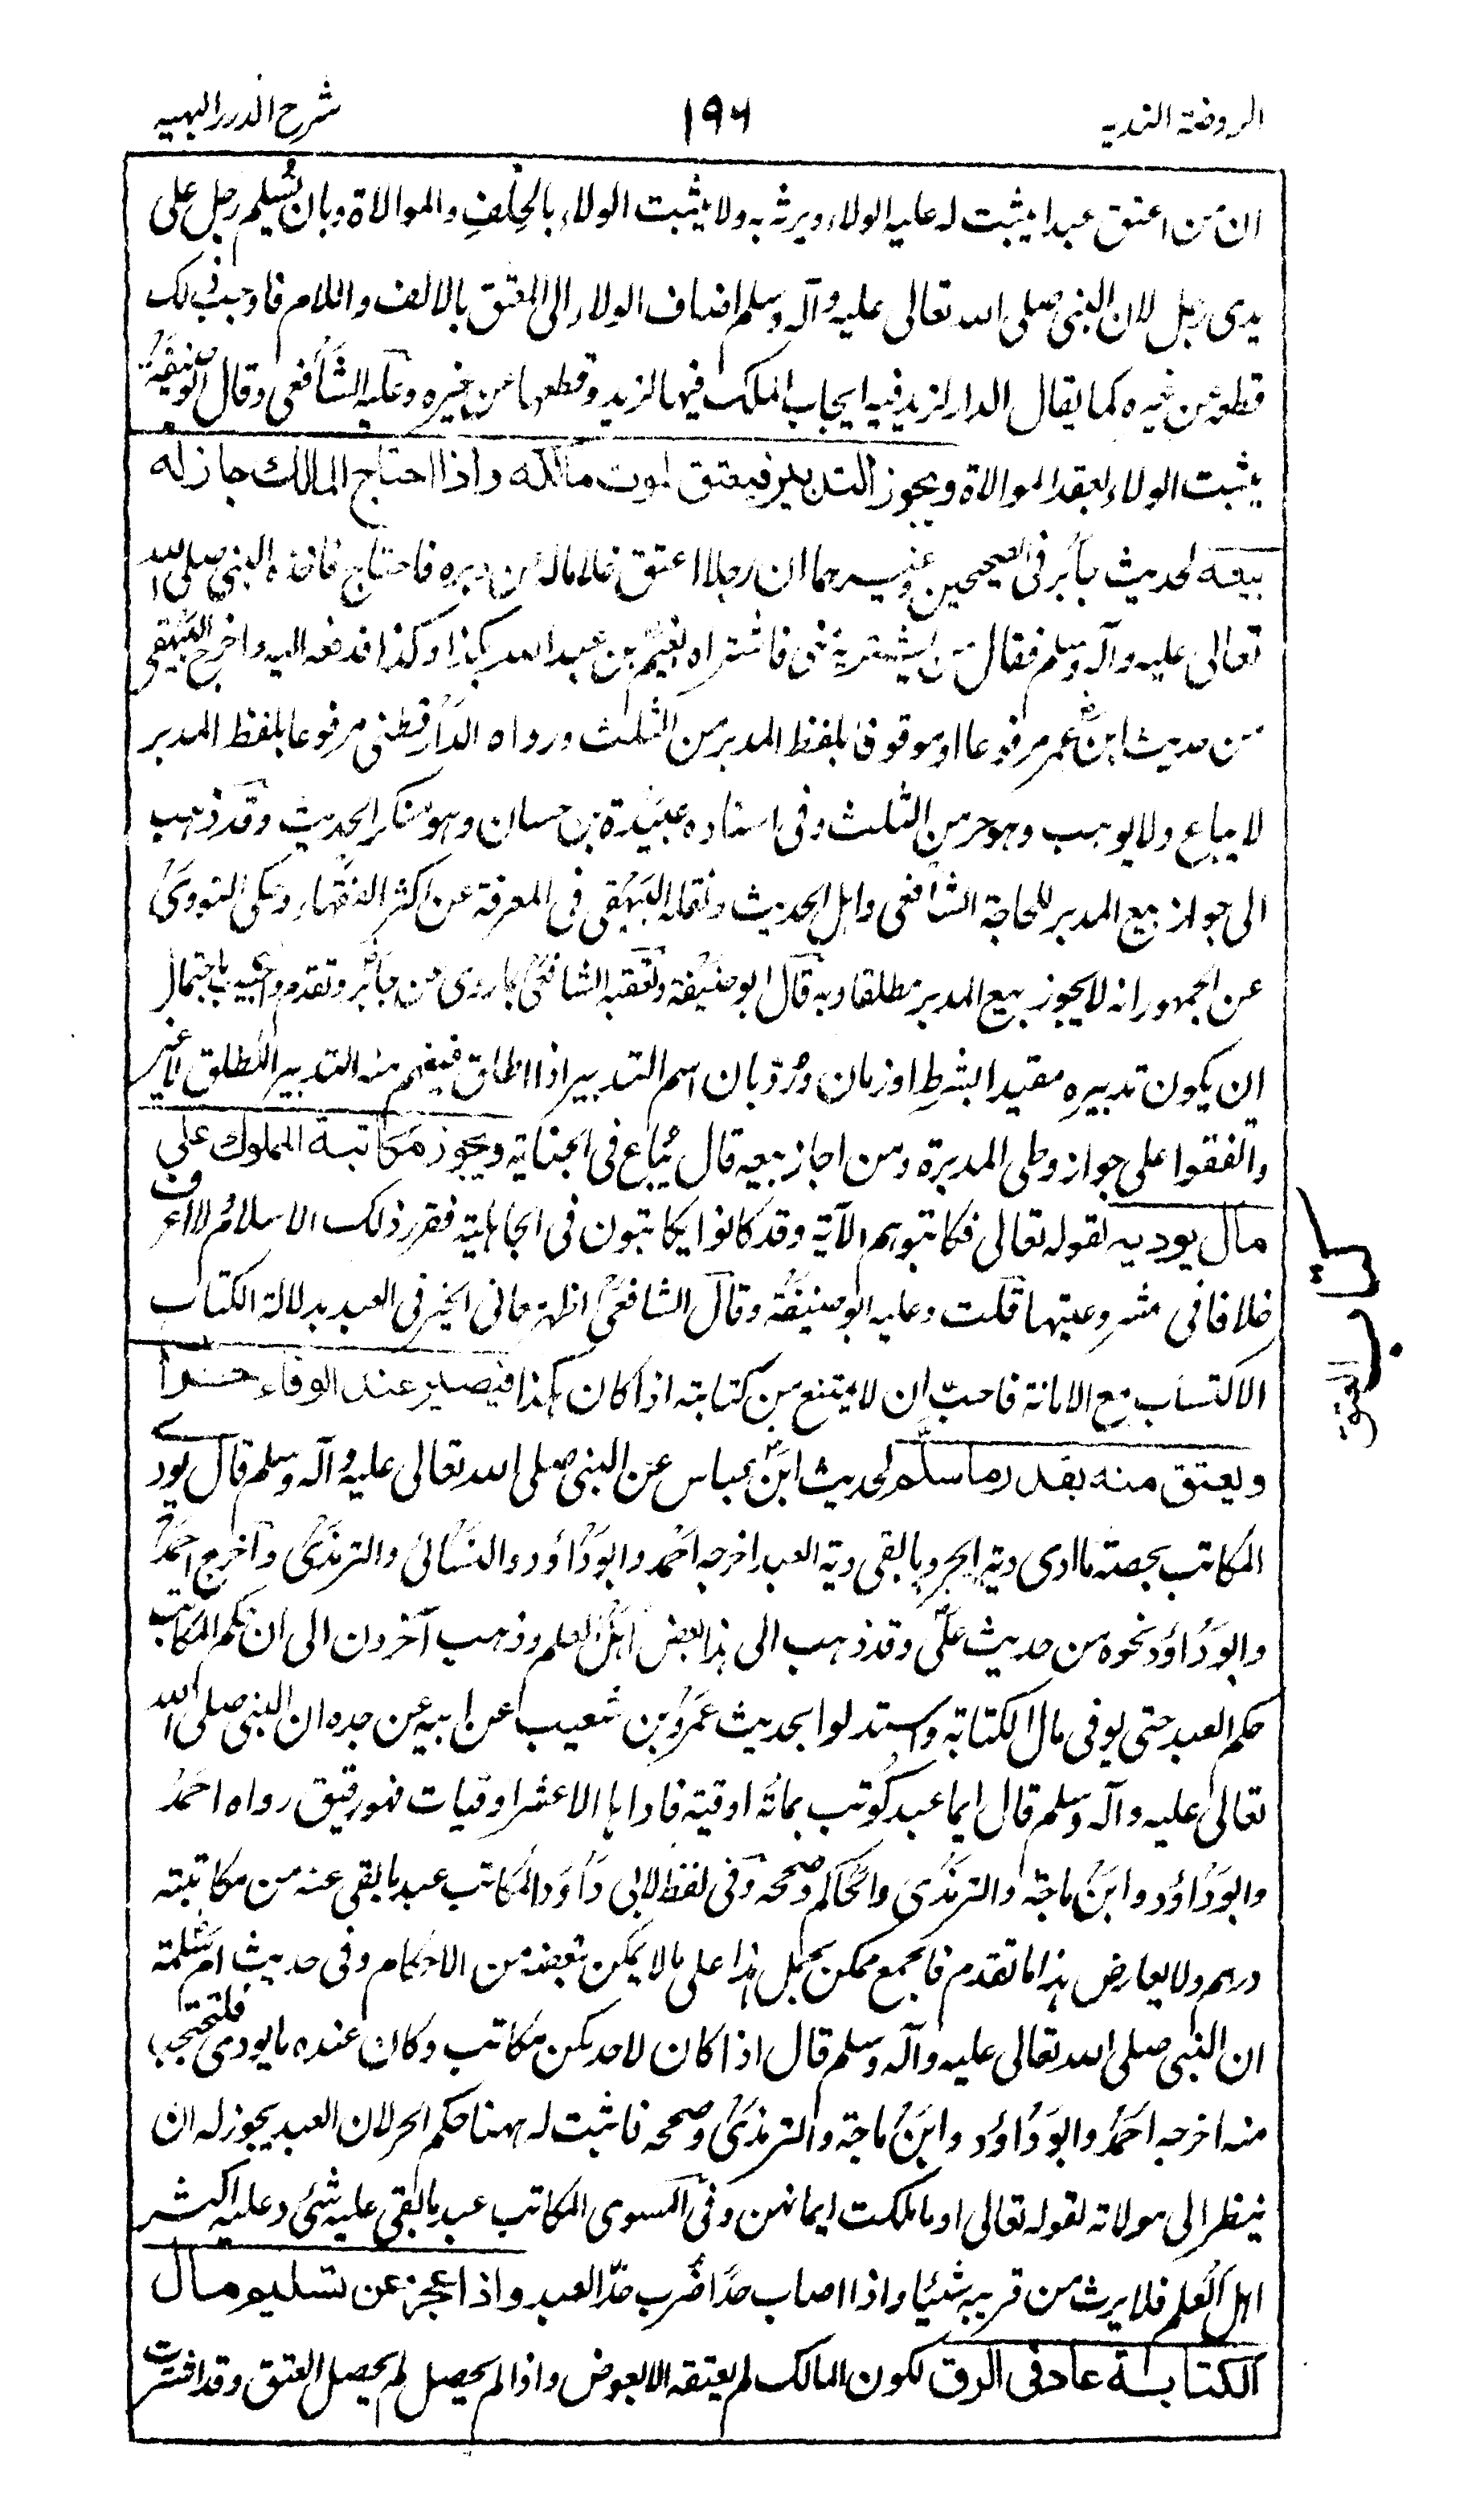 الروضة الندیه ١٩٦ شرح الدرر البهیه
ان من اعتق عبدا یثبت له علیه الولاء ویرثه به ولا یثبت الولاء بالحِلْفِ والموالاة وبان یُسْلِم رجل علی
یدی رجل لان النبی صلی الله تعالی علیه وآله وسلم اضاف الولاء الی المعتق بالالف واللام فاوجب ذلک
قطعه عن غیره کما یقال الدار لزید فیه ایجاب الملک فیها لزید وقطعها عن غیره وعلیه الشافعی وقال ابو حنیفة
یثبت الولاء بعقد الموالاة ویجوز التدبیر فیعتق لموت مالکه واذا احتاج المالک جاز له
بیعه لحدیث جابر فی الصحیحین وغیرهما ان رجلا اعتق غلاما له عن دبره فاحتاج فاخذه النبی صلی الله
تعالی علیه وآله وسلم فقال من یشتریه منی فاشتراه نعیم بن عبد الله بکذا وکذا فدفعه الیه واخرج البیهقی
من حدیث ابن عمر مرفوعا او موقوفا بلفظ المدبر من الثلث ورواه الدارقطنی مرفوعا بلفظ المدبر
لا یباع ولا یوهب وهو حر من الثلث وفی اسناده عبیدة بن حسان وهو منکر الحدیث وقد ذهب
الی جواز بیع المدبر للحاجة الشافعی واهل الحدیث ونقله البیهقی فی المعرفة عن اکثر الفقهاء وحکی النووی
عن الجمهور انه لا یجوز بیع المدبر مطلقا وبه قال ابو حنیفة وتعقبه الشافعی بما روی عن جابر وتقدم واجیب باحتمال
ان یکون تدبیره مقیدا بشرطٍ او زمان ورُدّ بان اسم التدبیر اذا اطلق فیفهم منه التدبیر المطلق لا غیر
واتفقوا علی جواز وطی المدبرة ومن اجاز بیعه قال یُباع فی الجنایة ویجوز مکاتبة المملوک علی
مال یودیه لقوله تعالی فکاتبوهم الآیة وقد کانوا یکاتبون فی الجاهلیة فقرر ذلک الاسلام لا اعرف
خلافا فی مشروعیتها قلت وعلیه ابو حنیفة وقال الشافعی اظهر معانی الخیر فی العبد بدلالة الکتاب
الاکتساب مع الامانة فاحب ان لا یمتنع من کتابته اذا کان هکذا فیصیر عند الوفاء حرا
ویعتق منه بقدر ما سلّم لحدیث ابن عباس عن النبی صلی الله تعالی علیه وآله وسلم قال یودی
المکاتب بحصة ما ادی دیة الحر وما بقی دیة العبد اخرجه احمد وابو داؤد والنسائی والترمذی واخرج احمد
وابو داؤد نحوه من حدیث علی وقد ذهب الی هذا بعض اهل العلم وذهب آخرون الی ان حکم المکاتب
حکم العبد حتی یوفی مال الکتابة واستدلوا بحدیث عمرو بن شعیب عن ابیه عن جده ان النبی صلی الله
تعالی علیه وآله وسلم قال ایما عبد کوتب بمائة اوقیة فاداها الا عشر اوقیات فهو رقیق رواه احمد
وابو داؤد وابن ماجة والترمذی والحاکم وصححه وفی لفظ لابی داؤد المکاتب عبد ما بقی عنه من مکاتبته
درهم ولا یعارض هذا ما تقدم فالجمع ممکن بحمل هذا علی ما لا یمکن تبعضه من الاحکام وفی حدیث ام سلمة
ان النبی صلی الله تعالی علیه وآله وسلم قال اذا کان لاحدکن مکاتب وکان عنده ما یودی فلتحتجب
منه اخرجه احمد وابو داؤد وابن ماجة والترمذی وصححه فاثبت له ههنا حکم الحر لان العبد یجوز له ان
ینظر الی مولاته لقوله تعالی او ما ملکت ایمانهن وفی المسوی المکاتب عبد ما بقی علیه شئ وعلیه اکثر
اهل العلم فلا یرث من قریبه شیئا واذا اصاب حدًا ضُرب حدّ العبد واذا عجز عن تسلیم مال
الکتابة عاد فی الرق لکون المالک لم یعتقه الا بعوض واذا لم یحصل لم یحصل العتق وقد اشترت
کتاب العتق